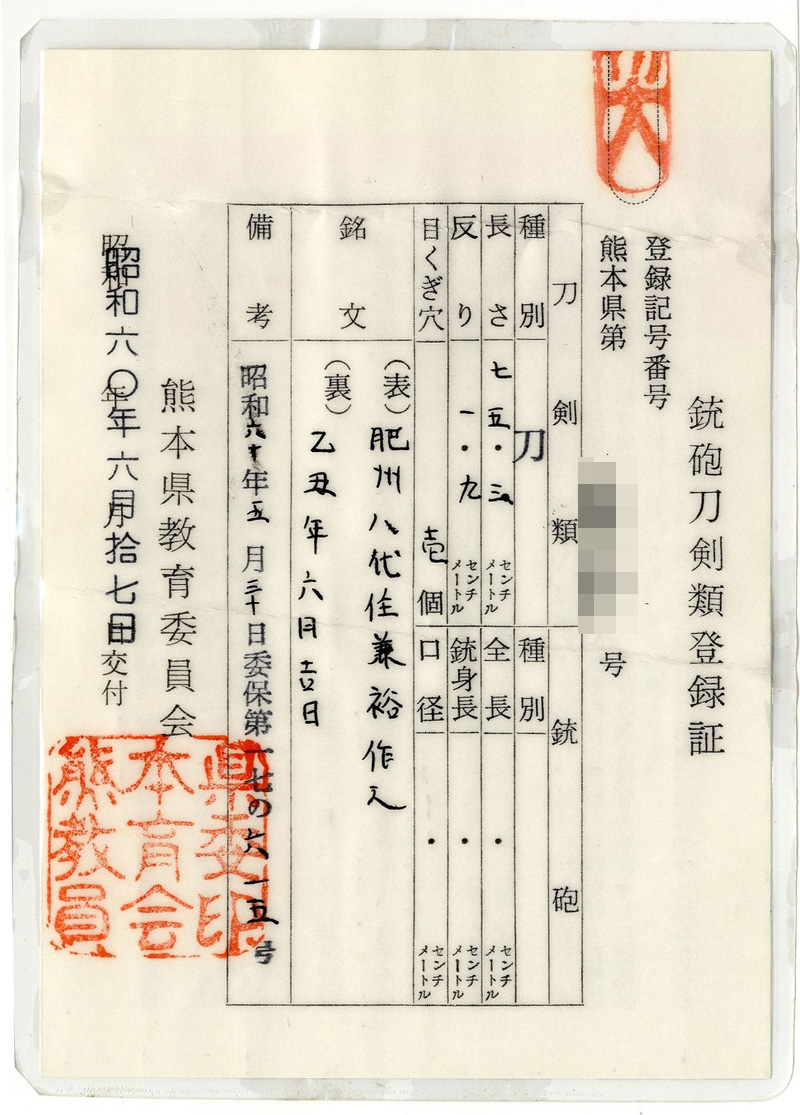 銃砲刀剣類登録証
登録記号番号
熊本県第 号
刀剣類 銃砲
種別 刀 種別
長さ 七五・三 センチメートル 全長 ・ センチメートル
反り 一・九 センチメートル 銃身長 ・ センチメートル
目くぎ穴 壱個 口径 ・ センチメートル
銘文 (表) 肥州八代住兼裕作之
(裏) 乙丑年六月吉日
備考 昭和六十年五月三十日委保第一七の六一五号
熊本県教育委員会
昭和六〇年六月拾七日交付
県委印
本育会
熊教員